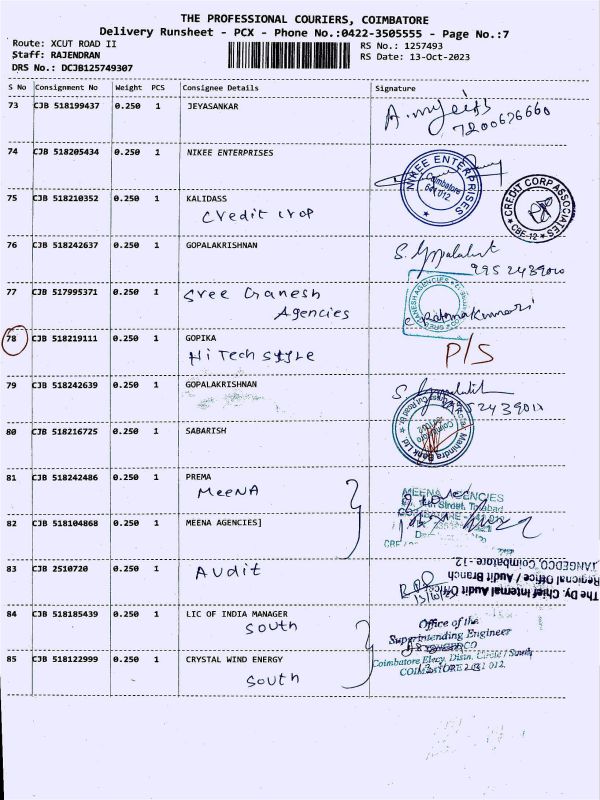 THE PROFESSIONAL COURIERS, COIMBATORE
Delivery Runsheet - PCX - Phone No.:0422-3505555 - Page No.:7
Route: XCUT ROAD II
RS No.: 1257493
Staff: RAJENDRAN
RS Date: 13-Oct-2023
DRS No.: DCJB125749307
S No Consignment No Weight PCS Consignee Details Signature
73 CJB 518199437 0.250 1 JEYASANKAR
7200676660
74 CJB 518205434 0.250 1 NIKEE ENTERPRISES
NIKEE ENTERPRISES
Coimbatore
641 012
75 CJB 518210352 0.250 1 KALIDASS
Credit crop
CREDIT CORP ASSOCIATES
CBE-12
76 CJB 518242637 0.250 1 GOPALAKRISHNAN
77 CJB 517995371 0.250 1 Sree Ganesh
Agencies
78 CJB 518219111 0.250 1 GOPIKA
Hi Tech style
P/S
79 CJB 518242639 0.250 1 GOPALAKRISHNAN
80 CJB 518216725 0.250 1 SABARISH
Mahindra Bank Ltd
81 CJB 518242486 0.250 1 PREMA
MeeNA
MEENA AGENCIES
82 CJB 518104868 0.250 1 MEENA AGENCIES]
83 CJB 2510720 0.250 1 Audit
The Dy. Chief Internal Audit Officer
Regional Office / Audit Branch
TANGEDCO, Coimbatore - 12.
84 CJB 518185439 0.250 1 LIC OF INDIA MANAGER
South
Office of the
Superintending Engineer
85 CJB 518122999 0.250 1 CRYSTAL WIND ENERGY
South
Coimbatore Elecy. Distn. Circle / South